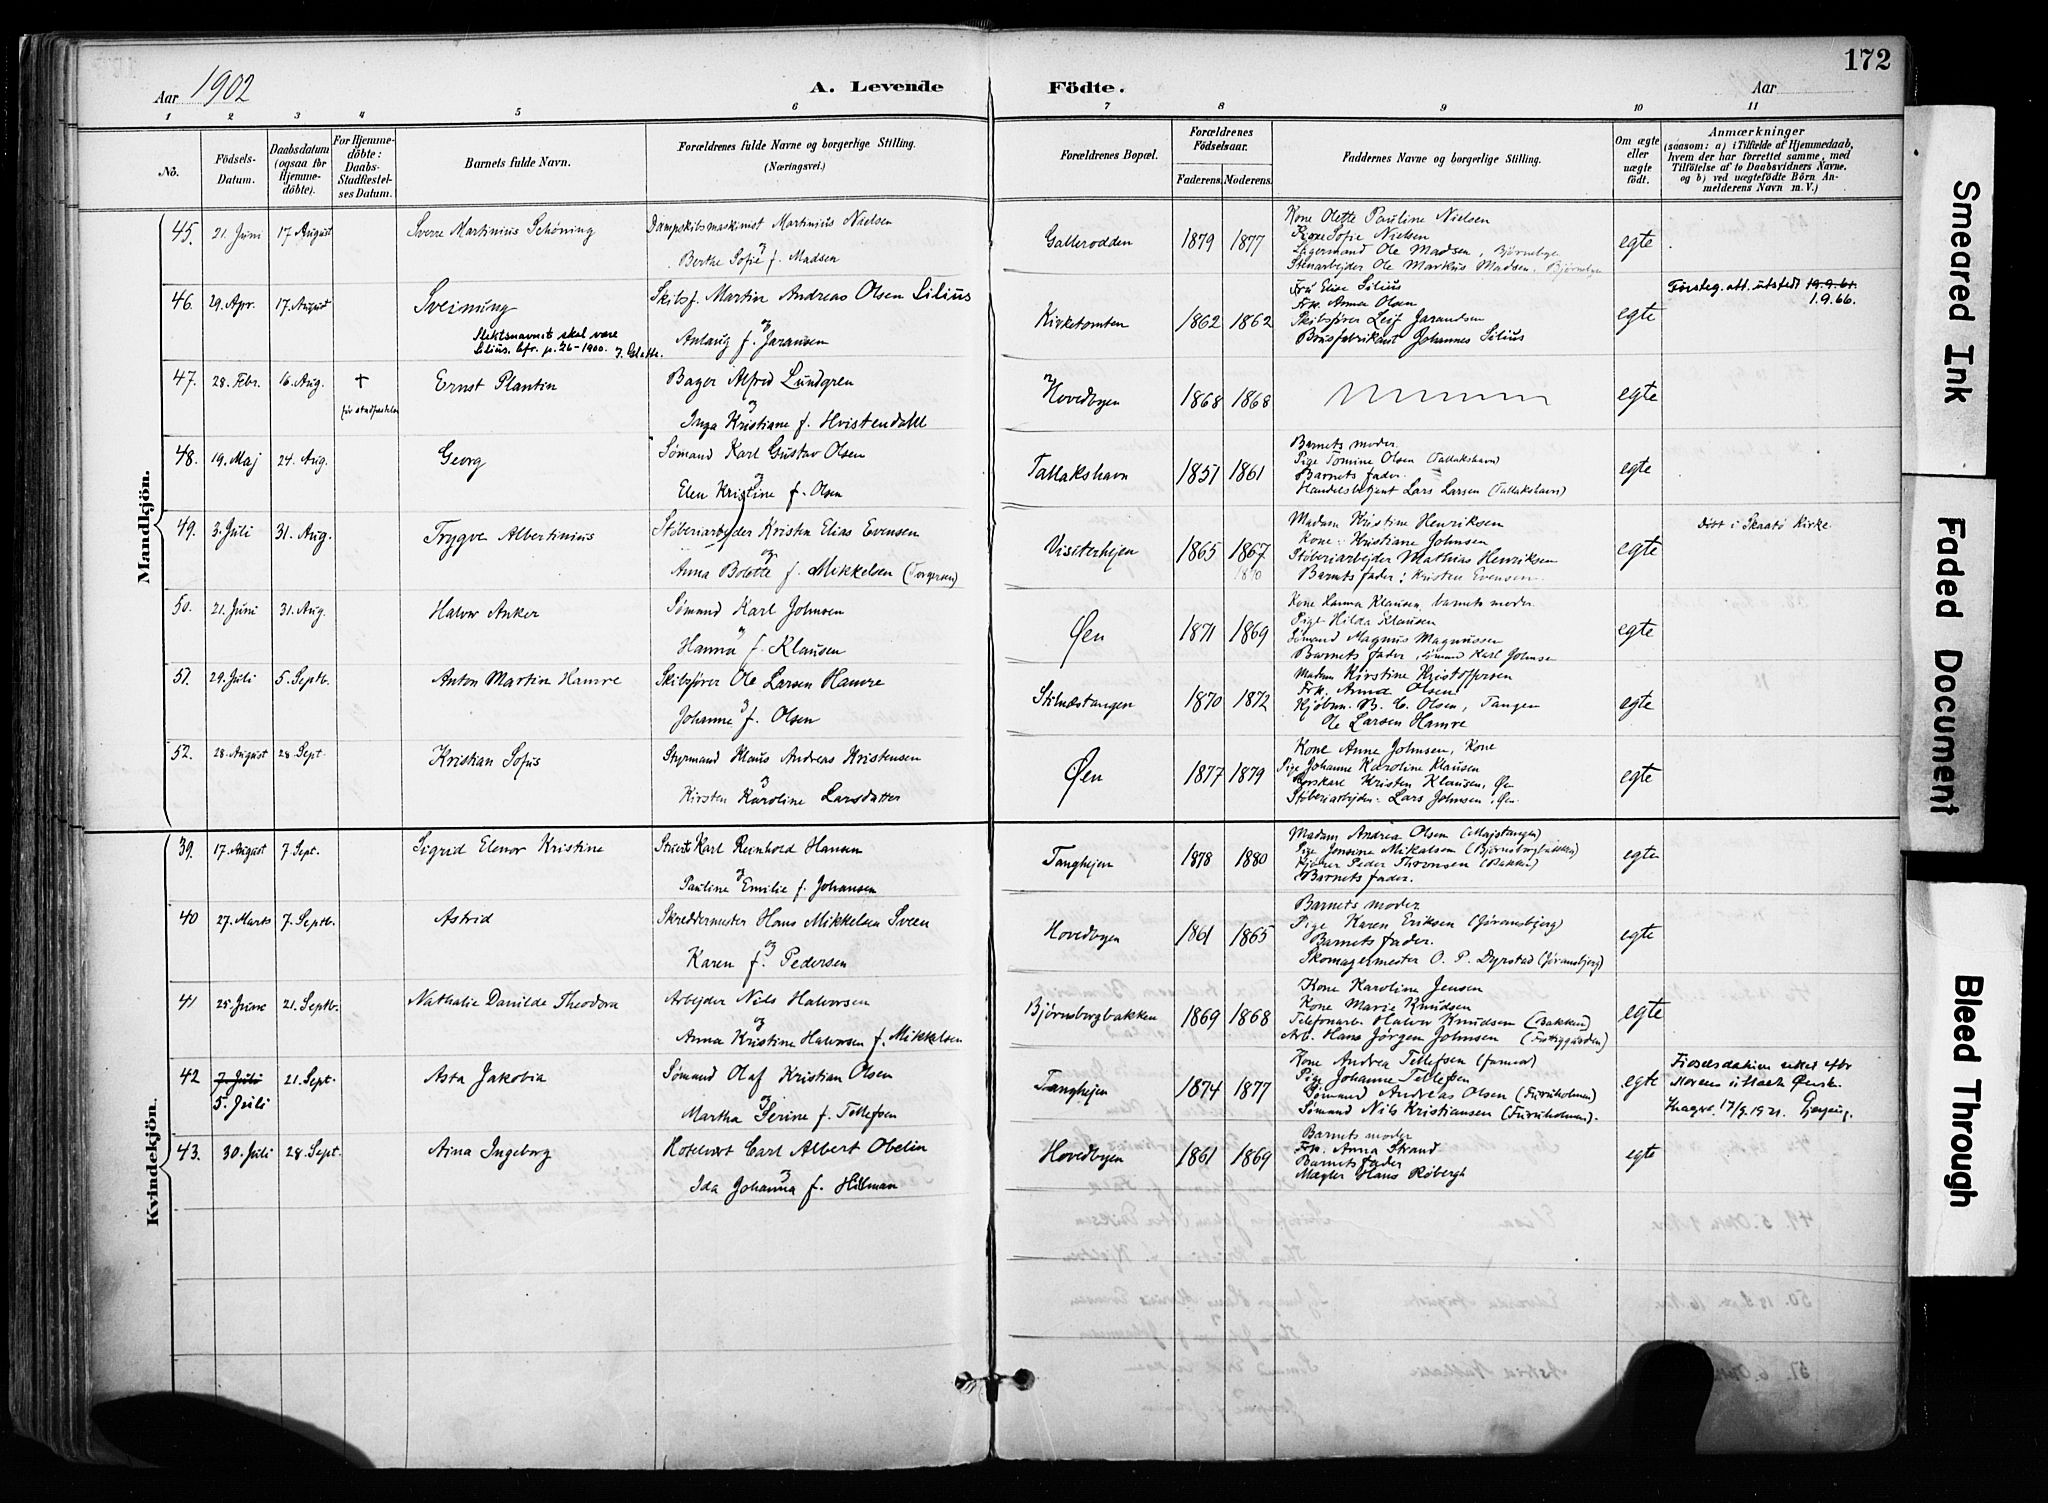 172
Aar 1902
A. Levende Födte.
Aar
1 2 3 4 5 6 7 8 9 10 11
No.
Födsels-Datum.
Daabsdatum (ogsaa for Hjemme-döbte).
For Hjemme-döbte: Daabs-Stadfæstel-ses Datum.
Barnets fulde Navn.
Forældrenes fulde Navne og borgerlige Stilling. (Næringsvei.)
Forældrenes Bopæl.
Forældrenes Födselsaar.
Faderens. Moderens.
Faddernes Navne og borgerlige Stilling.
Om ægte eller uægte födt.
Anmærkninger
(saasom: a) i Tilfælde af Hjemmedaab, hvem der har forrettet samme, med Tilföielse af to Daabsvidners Navne. og b) ved uægtefödte Börn An-melderens Navn m. V.)
Mandkjön.
45. 21 Juni 17 August Sverre Martinius Schöning
Dampskibsmaskinist Martinius Nielsen
og
Berthe Sofie f. Madsen
Gallerodden 1879 1877
Kone Olette Pauline Nielsen
Kone Sofie Nielsen
Lagermand Ole Madsen, Bjørnebye
Stenarbejder Ole Markus Madsen, Bjørnebye
egte
46. 29. Apr. 17. August Sveinung
Slektsnavnet skal være
Silius. Cfr. p. 26-1900.
Skibsf. Martin Andreas Olsen Silius
og
Anlaug f. Jaransen
Kirketomten 1862 1862
Fru Elise Silius
Frk. Anna Olsen
Skibsfører Leif Jarandsen
Brusfabrikant Johannes Silius
egte
Førsteg. att. utstedt 19.9.61.
1.9.66.
47. 28. Febr. 16. Aug. † før stadfæstelse
Ernst Plantin
Bager Alfred Lundgren
og
Inga Kristiane f. Hvistendahl
Hovedbyen 1868 1868
egte
48. 19. Maj 24. Aug. Georg
Sømand Karl Gustav Olsen
og
Elen Kristine f. Olsen
Tallakshavn 1851 1861
Barnets moder.
Pige Tomine Olsen (Tallakshavn)
Barnets fader.
Handelsbetjent Lars Larsen (Tallakshavn)
egte
49. 3. Juli 31. Aug. Trygve Albertinius
Støberiarbejder Kristen Elias Evensen
og
Anna Bolette f. Mikkelsen (Torgersen)
Visiterhejen 1865 1867
1870
Madam Kristine Henriksen
Kone: Kristiane Johnsen
Støberiarbejder Mathias Henriksen
Barnets fader: Kristen Evensen
egte
Døbt i Skaatø Kirke.
50. 21. Juni 31. Aug. Halvor Anker
Sømand Karl Johnsen
og
Hanna f. Klausen
Øen 1871 1869
Kone Hanna Klausen, barnets moder.
Pige Hilda Klausen
Sømand Magnus Magnussen
Barnets fader, sømand Karl Johnsen
egte
51. 29. Juli 5. Septb. Anton Martin Hamre
Skibsfører Ole Larsen Hamre
og
Johanne f. Olsen
Stilnæstangen 1870 1872
Madam Kirstine Kristoffersen
Frk. Anna Olsen
Kjøbm. B. C. Olsen, Tangen
Ole Larsen Hamre
egte
52. 28. August 28. Sept. Kristian Sofus
Styrmand Klaus Andreas Kristensen
og
Kirsten Karoline Larsdatter
Øen 1877 1879
Kone Anne Johnsen, Kone
Pige Johanne Karoline Klausen
Kristen Klausen, Øen
Støberiarbejder: Lars Johnsen, Øen
egte
Kvindekjön.
39. 17. August 7. Sept. Sigrid Elenor Kristine
Karl Reinhold Hansen
og
Pauline Emilie f. Johansen
Tanghejen 1878 1880
Madam Andrea Olsen (Majstangen)
Pige Jensine Mikalsen (Bjørnsborgbakken)
Kjører Peder Thronsen (Bakken)
Barnets fader.
egte
40 27. Marts 7. Septb. Astrid
Skreddermester Hans Mikkelsen Sveen
og
Karen f. Pedersen
Hovedbyen 1861 1865
Barnets moder
Pige Karen Eriksen (Jøransbjerg)
Barnets fader.
Skomagermester O. P. Dyrstad (Jøransbjerg)
egte
41 25. Januar 21. Septb. Nathalie Danilda Theodora
Arbejder Nils Halvorsen
og
Anna Kristine Halvorsen f. Mikkelsen
Bjørnsborgbakken 1869 1868
Kone Karoline Jensen
Kone Marie Knudsen
Telefonarb. Halvor Knudsen (Bakken)
Arb. Hans Jørgen Johnsen (Fattiggården)
egte
42 7. Juli 21. Sept. Asta Jakobia
5. Juli
Sømand Olaf Kristian Olsen
og
Martha Serine f. Tellefsen
Tanghejen 1874 1877
Kone Andrea Tellefsen (farmor)
Pige Johanne Tellefsen
Sømand Andreas Olsen (Furuholmen)
Sømand Nils Kristiansen (Furuholmen).
egte
Fødselsdatoen rettet efter
Kragerø 17/9 1921.
43. 30. Juli 28. Sept. Aina Ingeborg
Hotelvært Carl Albert Obelin
og
Ida Johanna f. Hillman
Hovedbyen 1861 1869
Barnets moder
Frk. Anna Strand
Barnets fader
Mægler Hans Röbergh
egte
Smeared Ink
Faded Document
Bleed Through